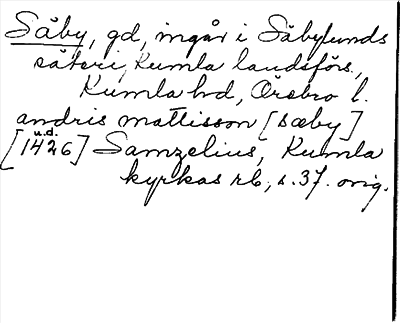 Säby, gd, ingår i Säbylunds
säteri, Kumla landsförs.,
Kumla hd, Örebro l.
andris mattisson [sæby]
u.d.
[1426] Samzelius, Kumla
kyrkas rb, s. 37. orig.